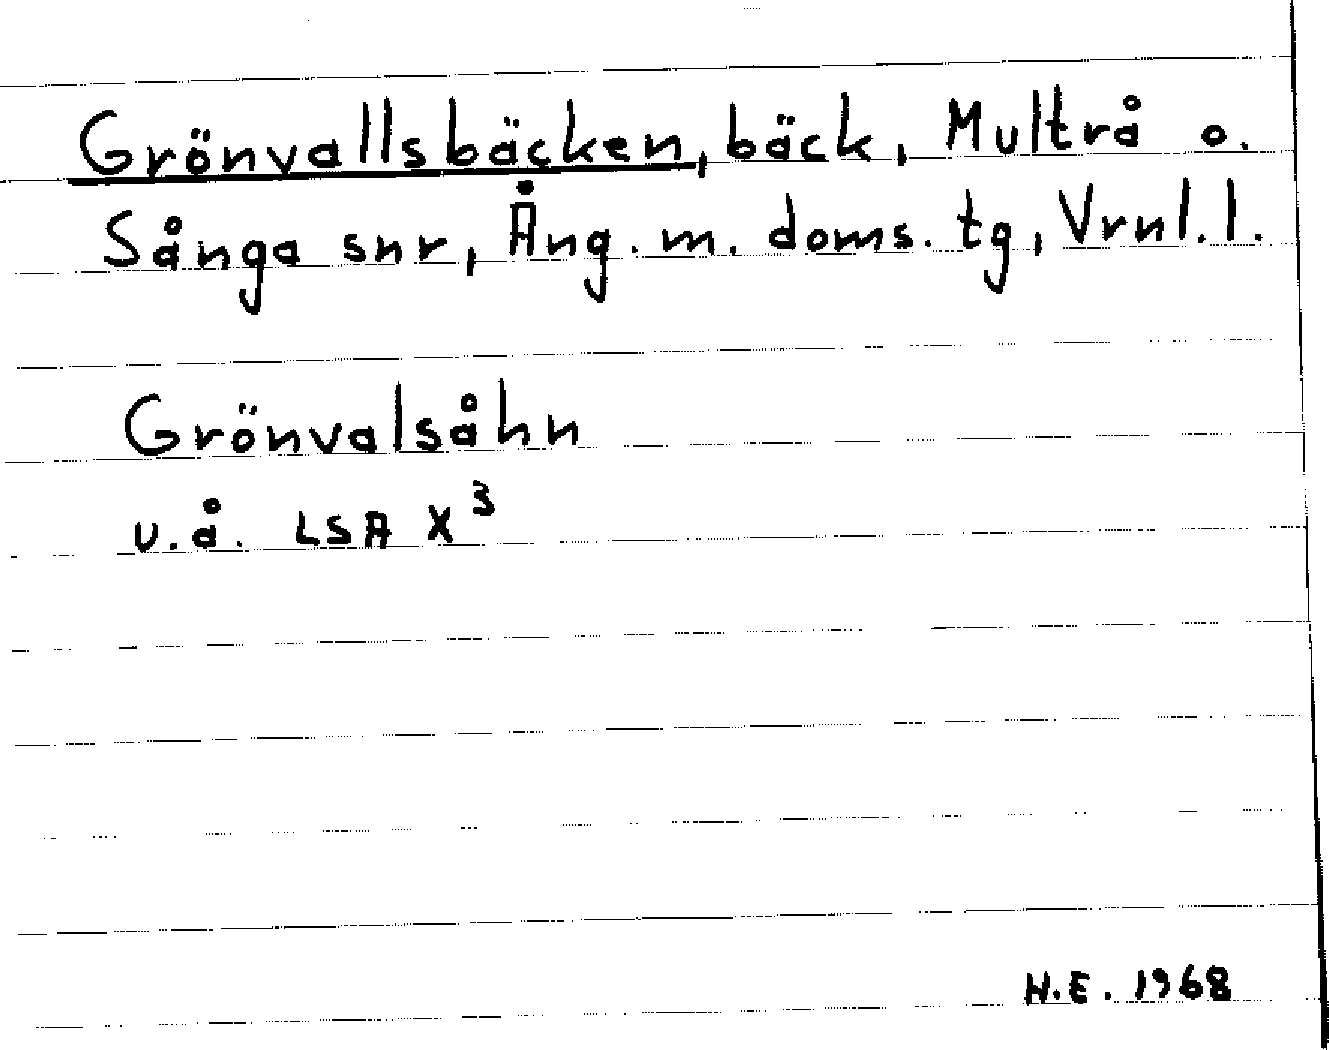 Grönvallsbäcken, bäck, Multrå o.
Sånga snr, Ång. m. doms. tg, Vrnl. l.
Grönvalsåhn
U.å. LSA X³
H.E. 1968